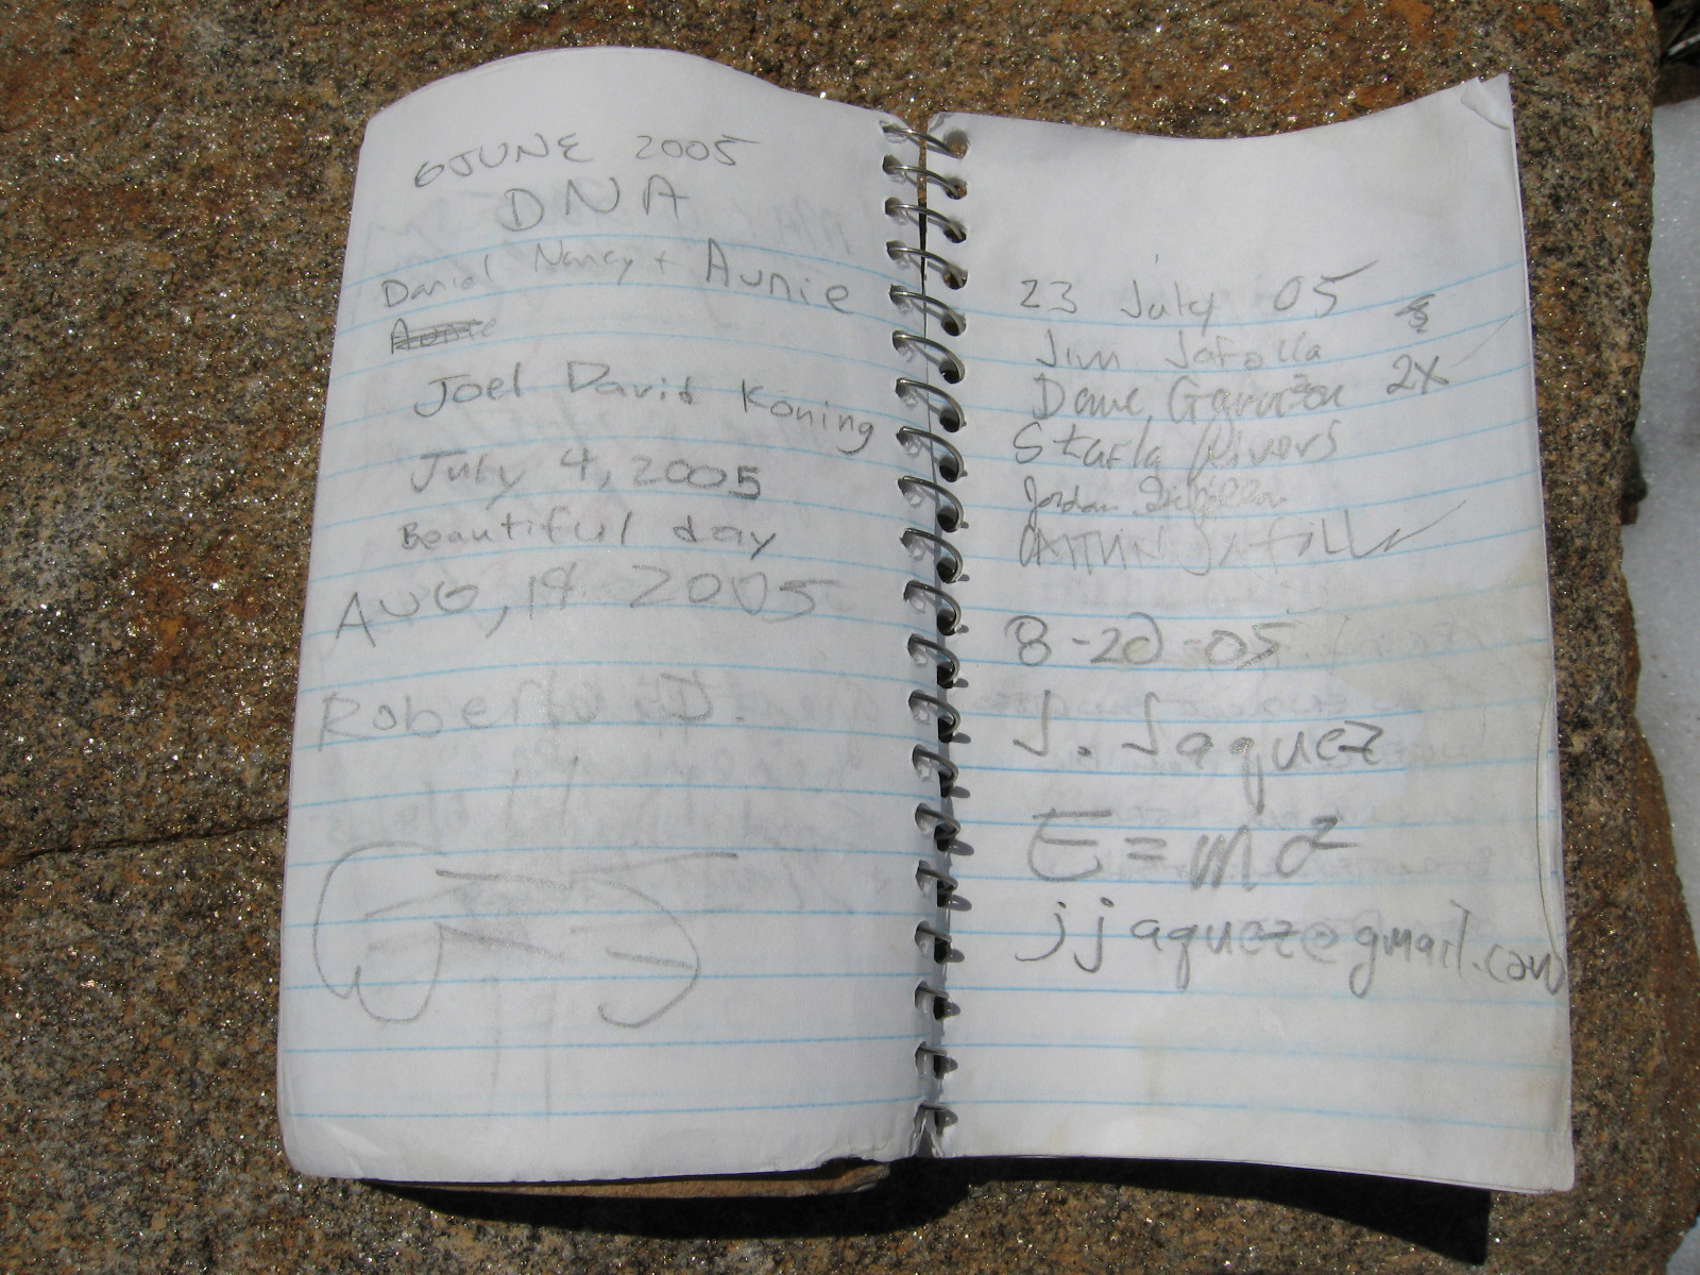 6 JUNE 2005
DNA
Daniel Nancy + Aunie
Joel David Koning
July 4, 2005
Beautiful day
AUG, 14 2005
Roberto D.
23 July 05
Jim Jafolla
Dave 2X
Starla Rivers
Jordan
CAITLIN Jafolla
8-20-05
J. Jaquez
E = mc²
jjaquez@gmail.com